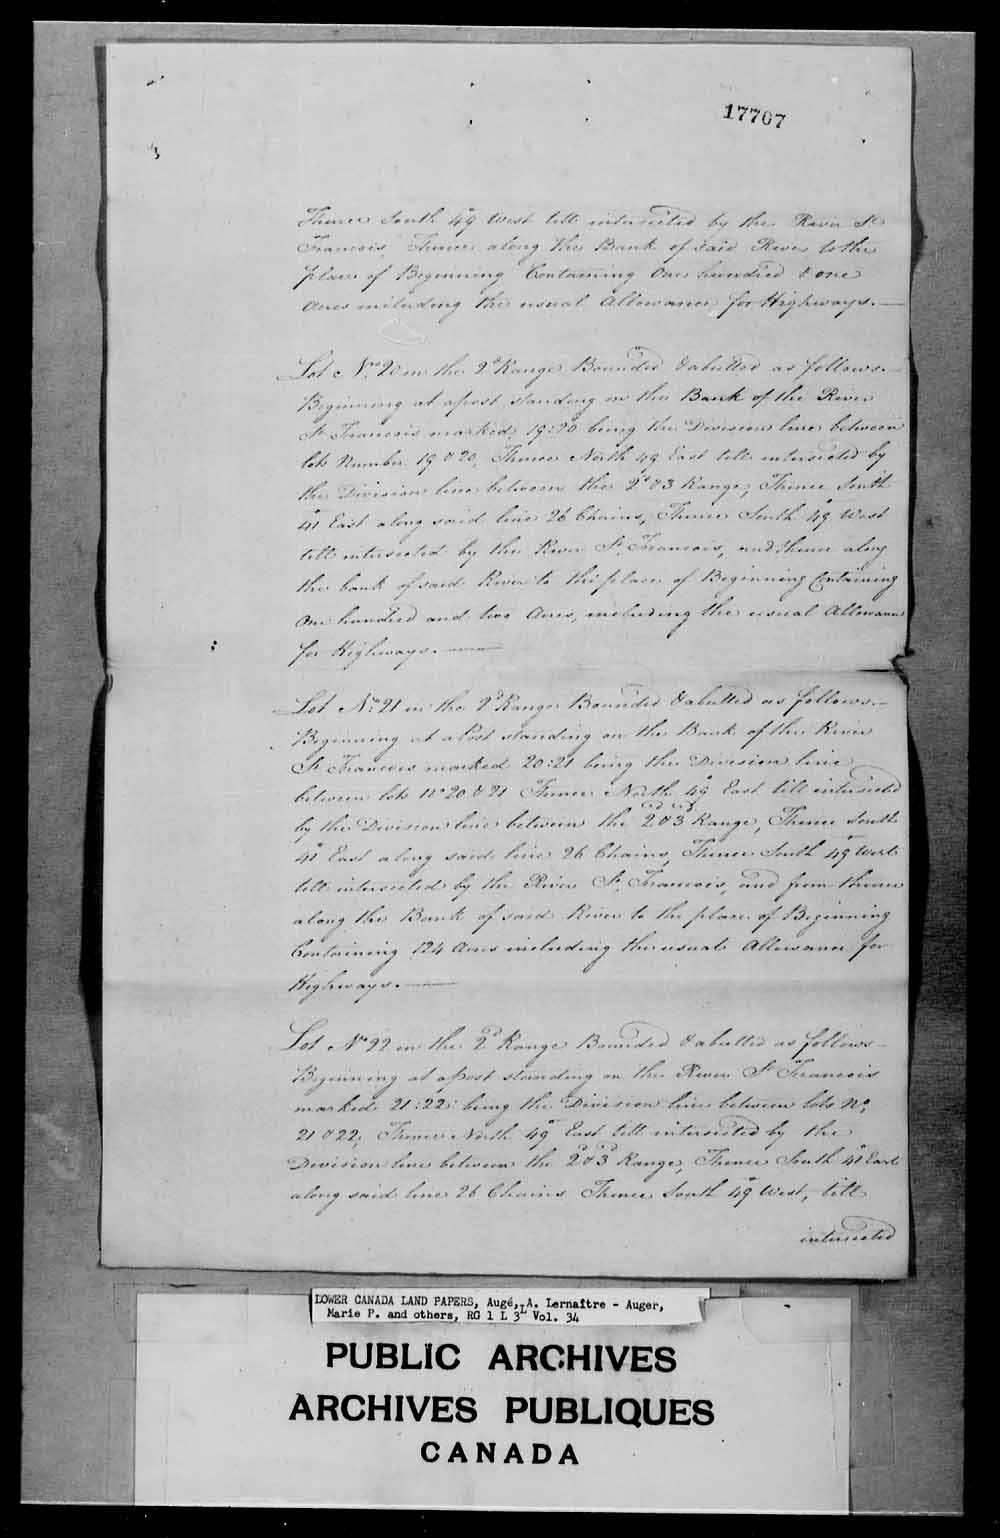 17707
Thence South 49° West till intersected by the River St
Francois, Thence along the Bank of said River to the
place of Beginning Containing One hundred & one
Acres including the usual Allowance for Highways.—
Lot No. 20 in the 2d Range Bounded & abutted as follows.—
Beginning at a post standing on the Bank of the River
St Francois marked 19:20 being the Division line between
lots Number 19 & 20, Thence North 49 East till intersected by
the Division line between the 2d & 3 Range, Thence South
41° East along said line 26 Chains, Thence South 49° West
till intersected by the River St. Francois, and thence along
the bank of said River to the place of Beginning Containing
One hundred and two Acres, including the usual Allowance
for Highways.—
Lot No. 21 in the 2d Range Bounded & abutted as follows.—
Beginning at a Post standing on the Bank of the River
St Francois marked 20:21 being the Division line
between lots No 20 & 21 Thence North 49° East till intersected
by the Division line between the 2d & 3d Range, Thence South
41° East along said line 26 Chains, Thence South 49° West
till intersected by the River St. Francois, and from thence
along the Bank of said River to the place of Beginning
Containing 124 Acres including the usual Allowance for
Highways.—
Lot No 22 in the 2d Range Bounded & abutted as follows—
Beginning at a post standing on the River St Francois
marked 21:22: being the Division line between lots No.
21 & 22, Thence North 49° East till intersected by the
Division line between the 2d & 3d Range, Thence South 41° East
along said line 26 Chains Thence South 49° West, till
intersected
LOWER CANADA LAND PAPERS, Augé, A. Lernaître - Auger,
Marie P. and others, RG 1 L 3L Vol. 34
PUBLIC ARCHIVES
ARCHIVES PUBLIQUES
CANADA